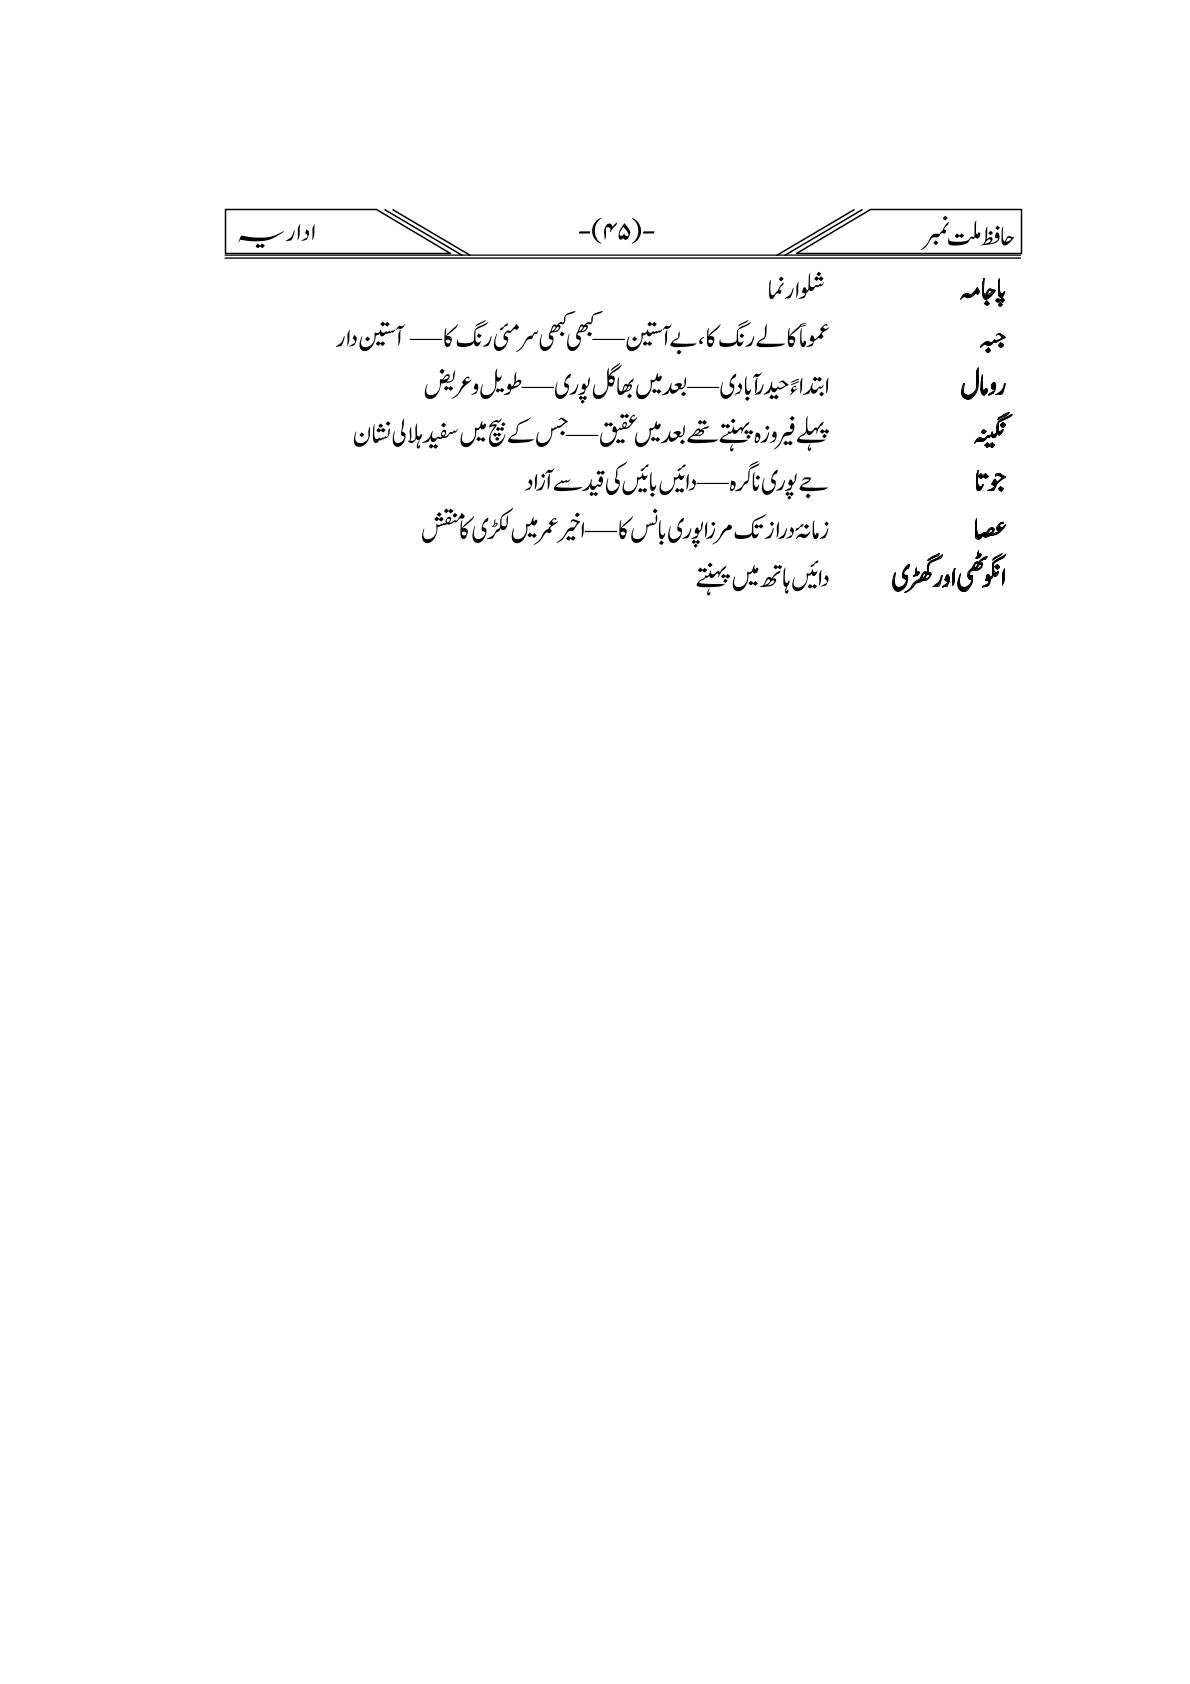 حافظ ملت نمبر -(۴۵)- اداریہ
پاجامہ شلوار نما
جبہ عموماً کالے رنگ کا، بے آستین——کبھی کبھی سرمئی رنگ کا—— آستین دار
رومال ابتداءً حیدرآبادی——بعد میں بھاگل پوری——طویل و عریض
نگینہ پہلے فیروزہ پہنتے تھے بعد میں عقیق——جس کے بیچ میں سفید ہلالی نشان
جوتا جے پوری ناگرہ——دائیں بائیں کی قید سے آزاد
عصا زمانۂ دراز تک مرزا پوری بانس کا——اخیر عمر میں لکڑی کا منقش
انگوٹھی اور گھڑی دائیں ہاتھ میں پہنتے